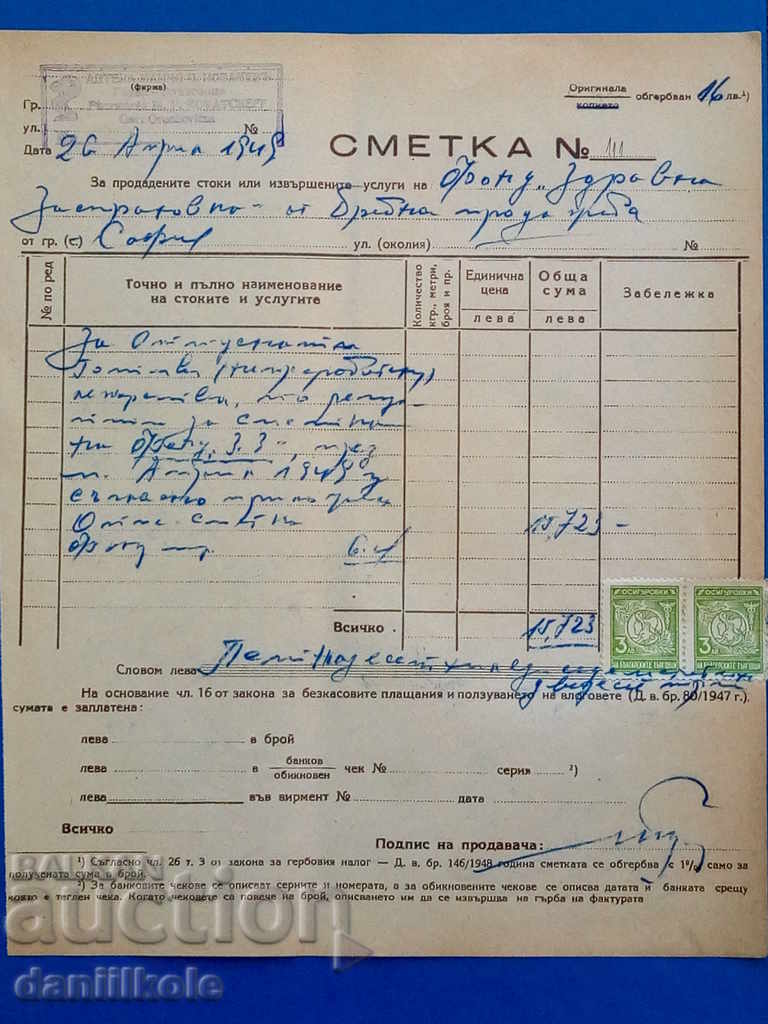 (фирма)
Гр.
ул. №
Оригинала
копието обгербван 16 лв.¹)
Дата 26 Април 1949
СМЕТКА № 111
За продадените стоки или извършените услуги на Фонд „Здравна
от дребна продажба
от гр. (с.) София ул. (околия) №
№ по ред
Точно и пълно наименование на стоките и услугите
Количество кгр., метри, броя и пр.
Единична цена
лева
Обща сума
лева
Забележка
За отпуснати
готови
лекарства, по рецепти
за сметка
на Фонд „З.З“, през
м. Април 1949 г
съгласно приложен
Опис-сметка
15,723 –
Всичко 15,723
ОСИГУРОВКИ
3 ЛВ
НА БЪЛГАРСКИТЕ ТЪРГОВЦИ
ОСИГУРОВКИ
3 ЛВ
НА БЪЛГАРСКИТЕ ТЪРГОВЦИ
Словом лева Петнадесет хиляди седемстотин
двадесет и три
На основание чл. 16 от закона за безкасовите плащания и ползуването на влоговете (Д. в. бр. 80/1947 г.),
сумата е заплатена:
лева в брой
лева в банков
обикновен чек № серия ²)
лева във вирмент № дата
Всичко
Подпис на продавача:
¹) Съгласно чл. 26 т. 3 от закона за гербовия налог — Д. в. бр. 146/1948 година сметката се обгербва с 1% само за
получената сума в брой.
²) За банковите чекове се описват серните и номерата, а за обикновените чекове се описва датата и банката срещу
която е теглен чека. Когато чековете са повече на брой, описването им да се извършва на гърба на фактурата
BALKAN
auction
daniilkole